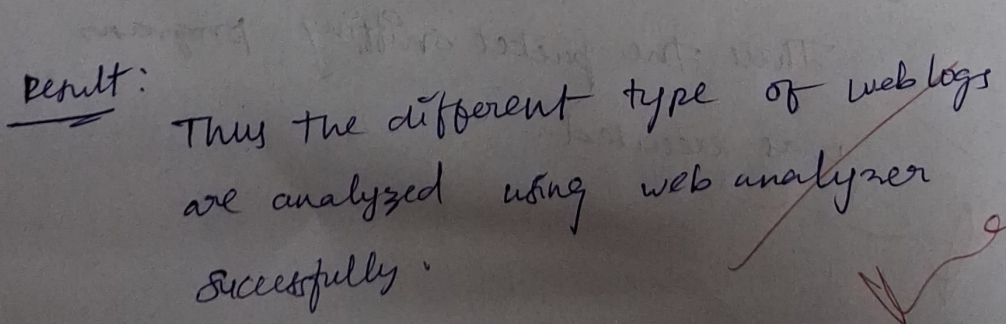 Result:
Thus the different type of weblogs
are analyzed using web analyzer
successfully.